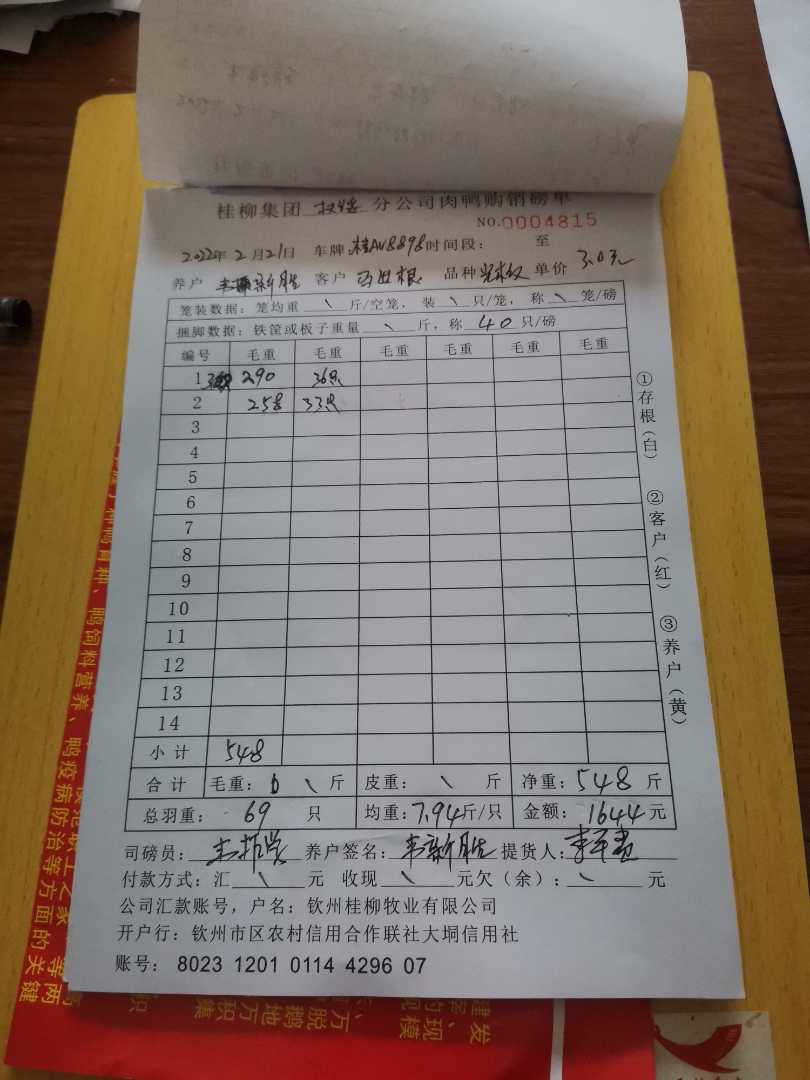 桂柳集团 分公司肉鸭购销磅单
NO.0004815
2022年2月21日 车牌:桂AV8898时间段: 至
养户 韦新胜 客户 马世根 品种 单价 3.0元
笼装数据:笼均重 \ 斤/空笼,装 \ 只/笼,称 \ 笼/磅
捆脚数据:铁筐或板子重量 \ 斤,称 40 只/磅
编号 毛重 毛重 毛重 毛重 毛重 毛重
1 290 36只
2 258 33只
3
4
5
6
7
8
9
10
11
12
13
14
小计 548
合计 毛重: \ 斤 皮重: \ 斤 净重:548 斤
总羽重: 69 只 均重:7.94斤/只 金额:1644元
司磅员: 养户签名:韦新胜 提货人:
付款方式:汇 \ 元 收现 \ 元欠(余): \ 元
公司汇款账号,户名:钦州桂柳牧业有限公司
开户行:钦州市区农村信用合作联社大垌信用社
账号: 8023 1201 0114 4296 07
①存根(白)
②客户(红)
③养户(黄)
鸭饲料营养、鸭疫病防治等方面的关键